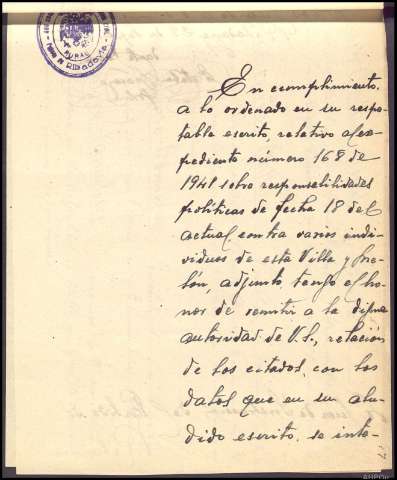 RIBADAVIA
En cumplimiento,
a lo ordenado en su respe-
table escrito, relativo al ex-
pediente número 168 de
1941 sobre responsabilidades
políticas de fecha 18 del
actual, contra varios indi-
viduos de esta Villa y
adjunto tengo el ho-
nor de remitir a la digna
autoridad de V.S., relación
de los citados, con los
datos que en su alu-
dido escrito, se inte-